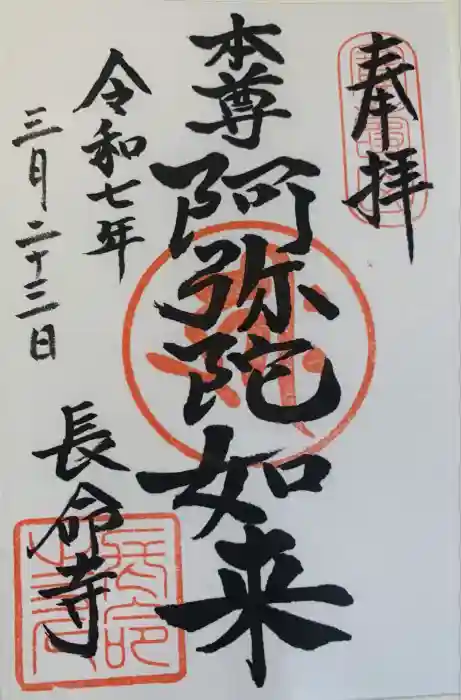 奉拝
本尊
阿弥陀如来
令和七年
三月二十三日
長命寺